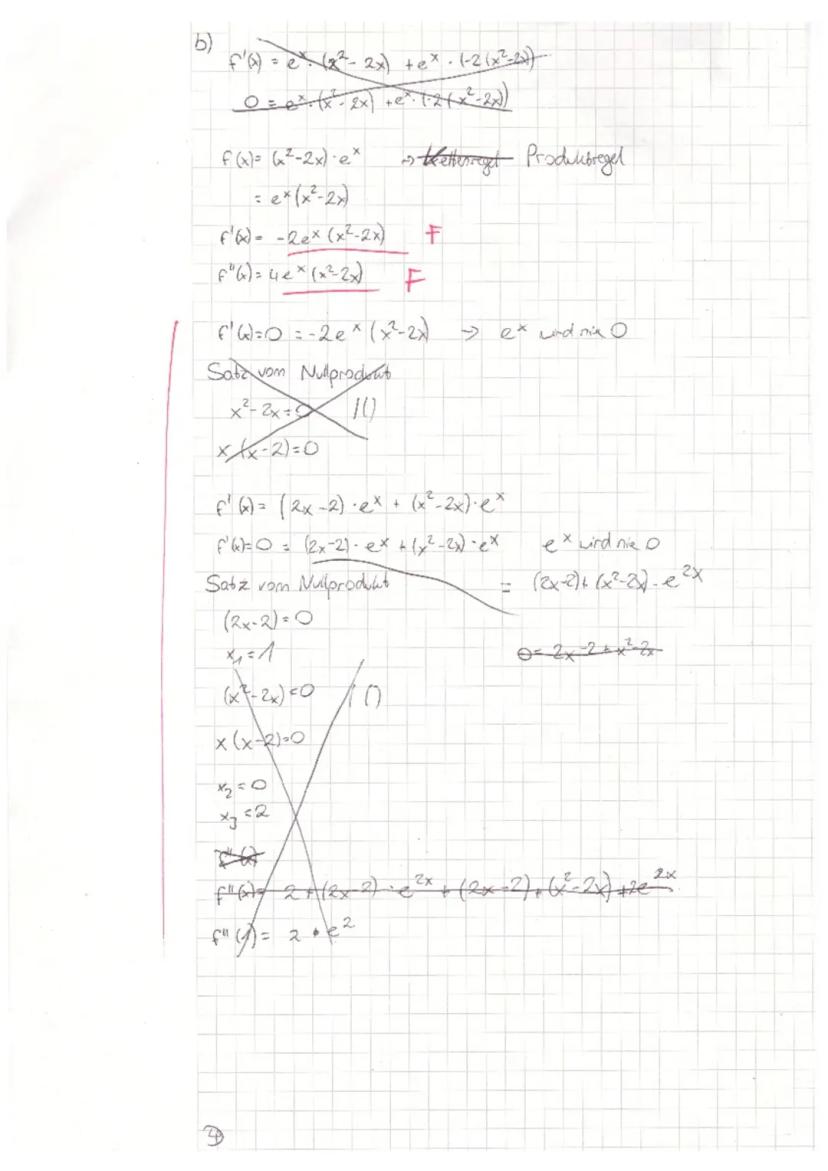 b)
f'(x) = e^x · (x²- 2x) + e^x · (-2(x²-2x))
0 = e^x · (x²- 2x) + e^x · (-2(x²-2x))
f(x) = (x²-2x) · e^x → Kettenregel Produktregel
= e^x (x²-2x)
f'(x) = -2e^x (x²-2x) F
f''(x) = 4e^x (x²-2x) F
f'(x)=0 = -2e^x (x²-2x) → e^x wird nie 0
Satz vom Nullprodukt
x²- 2x = 0 |()
x (x-2) = 0
f'(x) = (2x-2) · e^x + (x²-2x) · e^x
f'(x)=0 = (2x-2) · e^x + (x²-2x) · e^x e^x wird nie 0
Satz vom Nullprodukt = (2x-2) + (x²-2x) · e^2x
(2x-2) = 0
x₁ = 1 0 = 2x-2 + x²-2x
(x²-2x) = 0 |()
x (x-2) = 0
x₂ = 0
x₃ = 2
f''(x)
f''(x) = 2 + (2x-2) · e^2x + (2x-2) + (x²-2x) + 2e^2x
f''(1) = 2 · e²